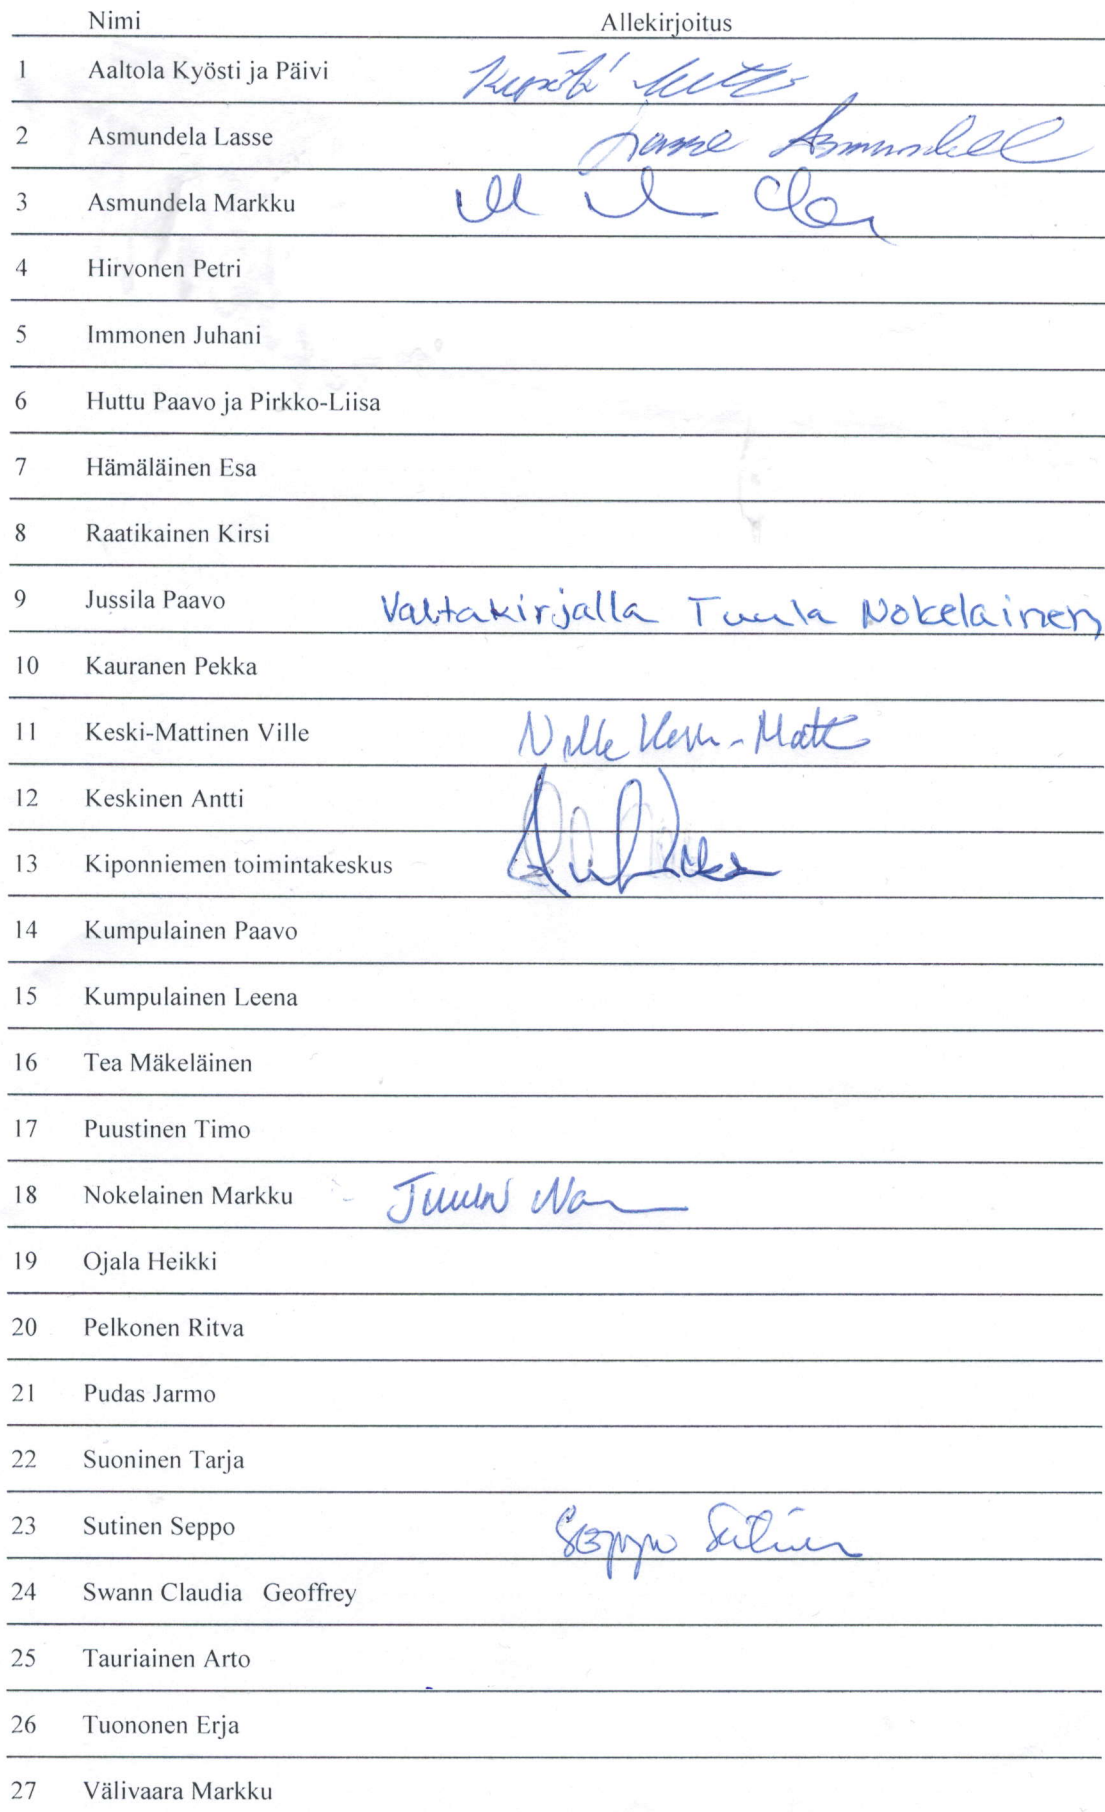 Nimi Allekirjoitus
1 Aaltola Kyösti ja Päivi
2 Asmundela Lasse Lasse Asmundela
3 Asmundela Markku
4 Hirvonen Petri
5 Immonen Juhani
6 Huttu Paavo ja Pirkko-Liisa
7 Hämäläinen Esa
8 Raatikainen Kirsi
9 Jussila Paavo Valtakirjalla Tuula Nokelainen
10 Kauranen Pekka
11 Keski-Mattinen Ville Ville
12 Keskinen Antti
13 Kiponniemen toimintakeskus
14 Kumpulainen Paavo
15 Kumpulainen Leena
16 Tea Mäkeläinen
17 Puustinen Timo
18 Nokelainen Markku Tuula
19 Ojala Heikki
20 Pelkonen Ritva
21 Pudas Jarmo
22 Suoninen Tarja
23 Sutinen Seppo Seppo Sutinen
24 Swann Claudia Geoffrey
25 Tauriainen Arto
26 Tuononen Erja
27 Välivaara Markku